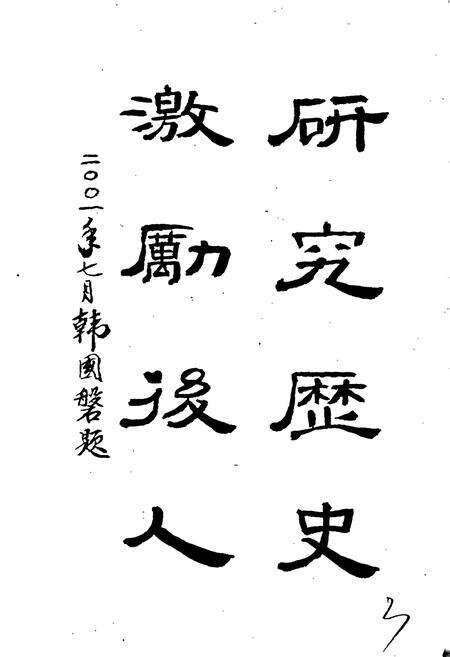 研究歷史
激勵後人
二〇〇一年七月韩國磐题